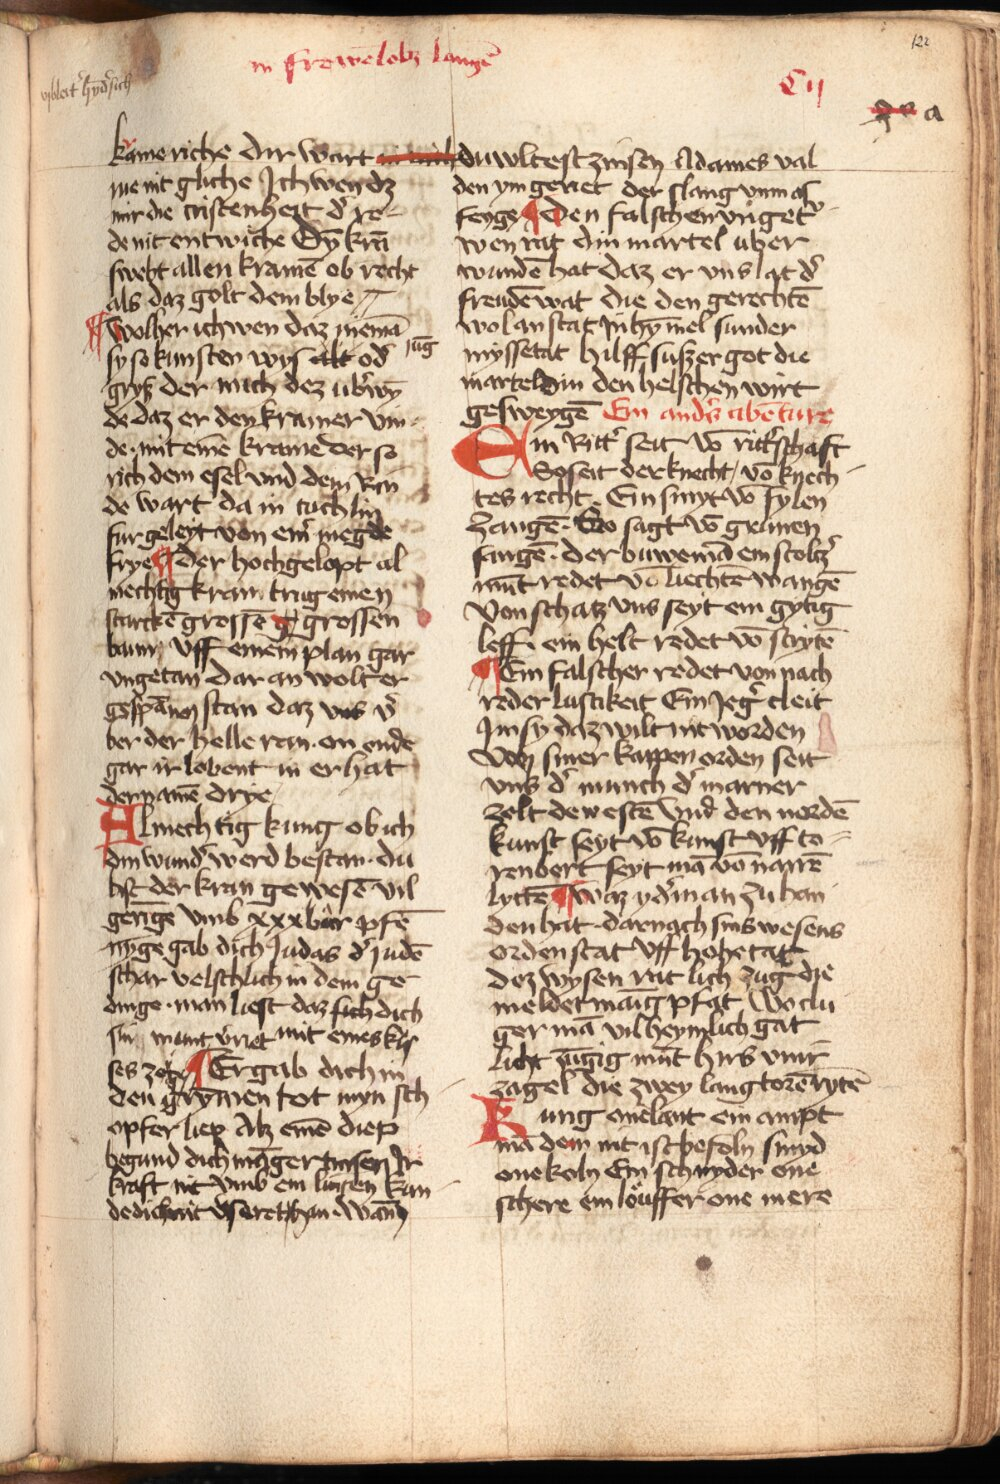 in frowēlobs langē
Cij
122
a
kāme riche dir wart
nie nit gliche Ich wen dz
mir die cristenheit d' re-
de nit entwiche Dȳ krā
swebt allen kramē ob recht
als daz golt dem blye
Wolher ich wen daz niemā
sy so kunsten wys alt od' jūg
grys der mich dez ub'wȳ
de daz er den kramer vin-
de mit einē krame der so
rich dem esel vnd dem Rin
de wart da in tuchlin
fur geleyt von ein' megde
frye der hochgelopt al
mechtig kram trug einen
starckē grossē grossen
baum Vff einem plan gar
vngetan dar an wolt er
gespānen stan daz vns v'
ber der helle ran on ende
gar ir lobent in er hat
der namē drye
Almechtig kung ob ich
din wund' werd bestan du
bist der kran gewesē vil
geringe vmb xxx bar pfē
nyge gab dich Judas d' judē
schar velschlich in dem ge
dinge man liest daz sich dich
sin munt v'riet mit eines kus
ses Er gab dich in
den grymen tot myn sch
opfer liep Alz einē diep
begund dich
kraft nit vmb ein
de dich nit
du woltest zinsen Adames val
den ym geriet der slang vnmas
feyge den falschen vnget'-
wen rat din martel uber
wundē hat daz er vns lat d'
freudē wat die den gerechtē
wol anstat In hȳmel sunder
myssetat hilff suszer got die
martel din den helschen wirt
gesweygē Ein and's abenture
Ein Ritt' seit vō ritt'schaft
So seit der knecht vō knech
tes recht Ein smyt vō fylen
zangē So sagt vō grunen
sangē der buwemā ein stoltz'
mūt redet vō liechtē wangē
Von schatz vns seyt ein gytig
leff ein helt redet vō strytē
Ein falscher redet von nach
reder lustikeit Ein Jeg' cleit
Im sy daz wilt int worden
Von siner kappen orden seit
vns d' munch d' marner
zelt de westē Vnd den nordē
kunst seyt vō kunst vff to-
renbert seyt mā vō narrē
lyttē waz yd'man zu han
den hat darnach sins wesens
orden stat Vff hohe tat
dez wysen rat lich zug die
meldet maīg pfat Wo clu
ger mā vil heymlich gat
licht
zagel die zwey lang torē rytē
Kung one lant ein ampt
mā dem nit ist befoln smyd
one koln Ein schnyder one
schere ein löuffer one mere